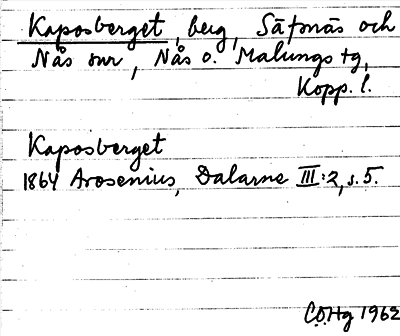 Kaposberget, berg, Säfsnäs och
Nås snr, Nås o. Malungs tg,
Kopp. l.
Kaposberget
1864 Arosenius, Dalarne III:2, s. 5.
COHg 1962